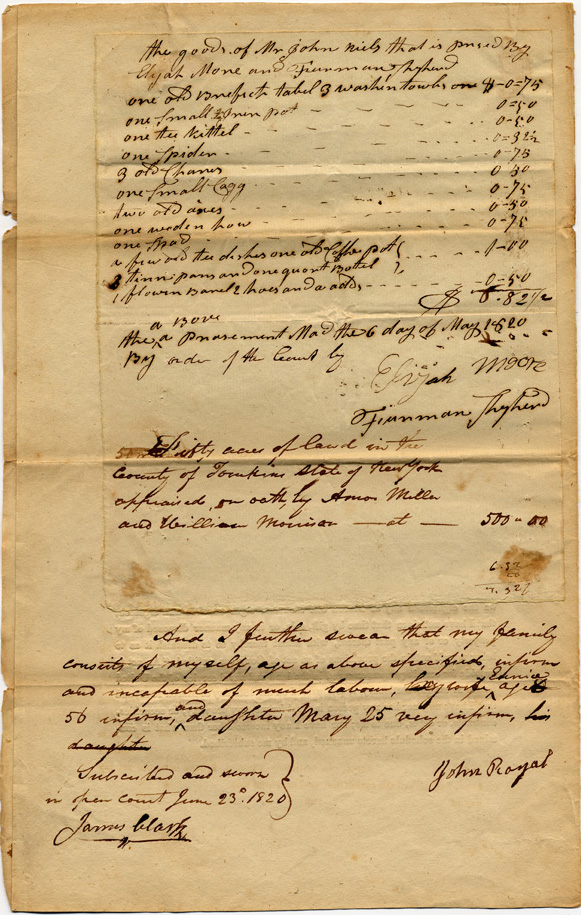 the goods of Mr John Riels that is prised By
Elijah More and Firmman Shepherd
one old Brefect tabel 3 washin towbs one $-0=75
one small Iren pot 0=50
one tee kittel 0-50
one Spider 0=37½
3 old Chares 0-75
one small Cagg 0-50
two old axes 0-75
one woden how 0-50
one Spad 0-75
a few old tee dishes one old Coffee pot
3 tinn pans and one quart Bottel 1-00
1 flower Barel 2 hoes and a adds 0-50
$ 6.82½
a Bove
the a Prasement Mad the 6 day of May 1820
By order of the Court by
Elijah Moore
Firmman Shepherd
Fifty acres of land in the
County of Tomkins State of New York
appraised, on oath, by Amos Miller
and William Morrison — at — 500=00
6.32
50
7.32½
And I further swear that my family
consists of myself, age as above specified, infirm
and incapable of much labour, wife Eunice age
56 infirm, and daughter Mary 25 very infirm, his
daughter
Subscribed and sworn
in open court June 23d. 1820
John Royal
James Clark